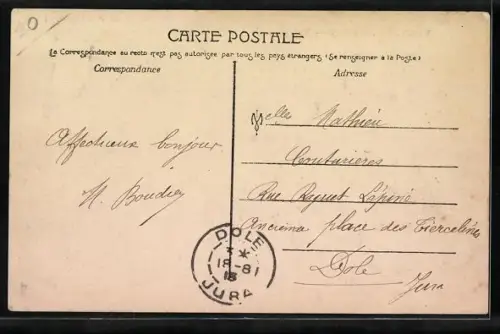 20
CARTE POSTALE
La Correspondance au recto n'est pas autorisée par tous les pays étrangers (Se renseigner à la Poste)
Correspondance
Adresse
Melle Mathieu
Affectueux bonjour
Couturières
Rue Raguet Lépine
place des Tiercelines
Dole
Jura
DOLE
18-8
18
JURA